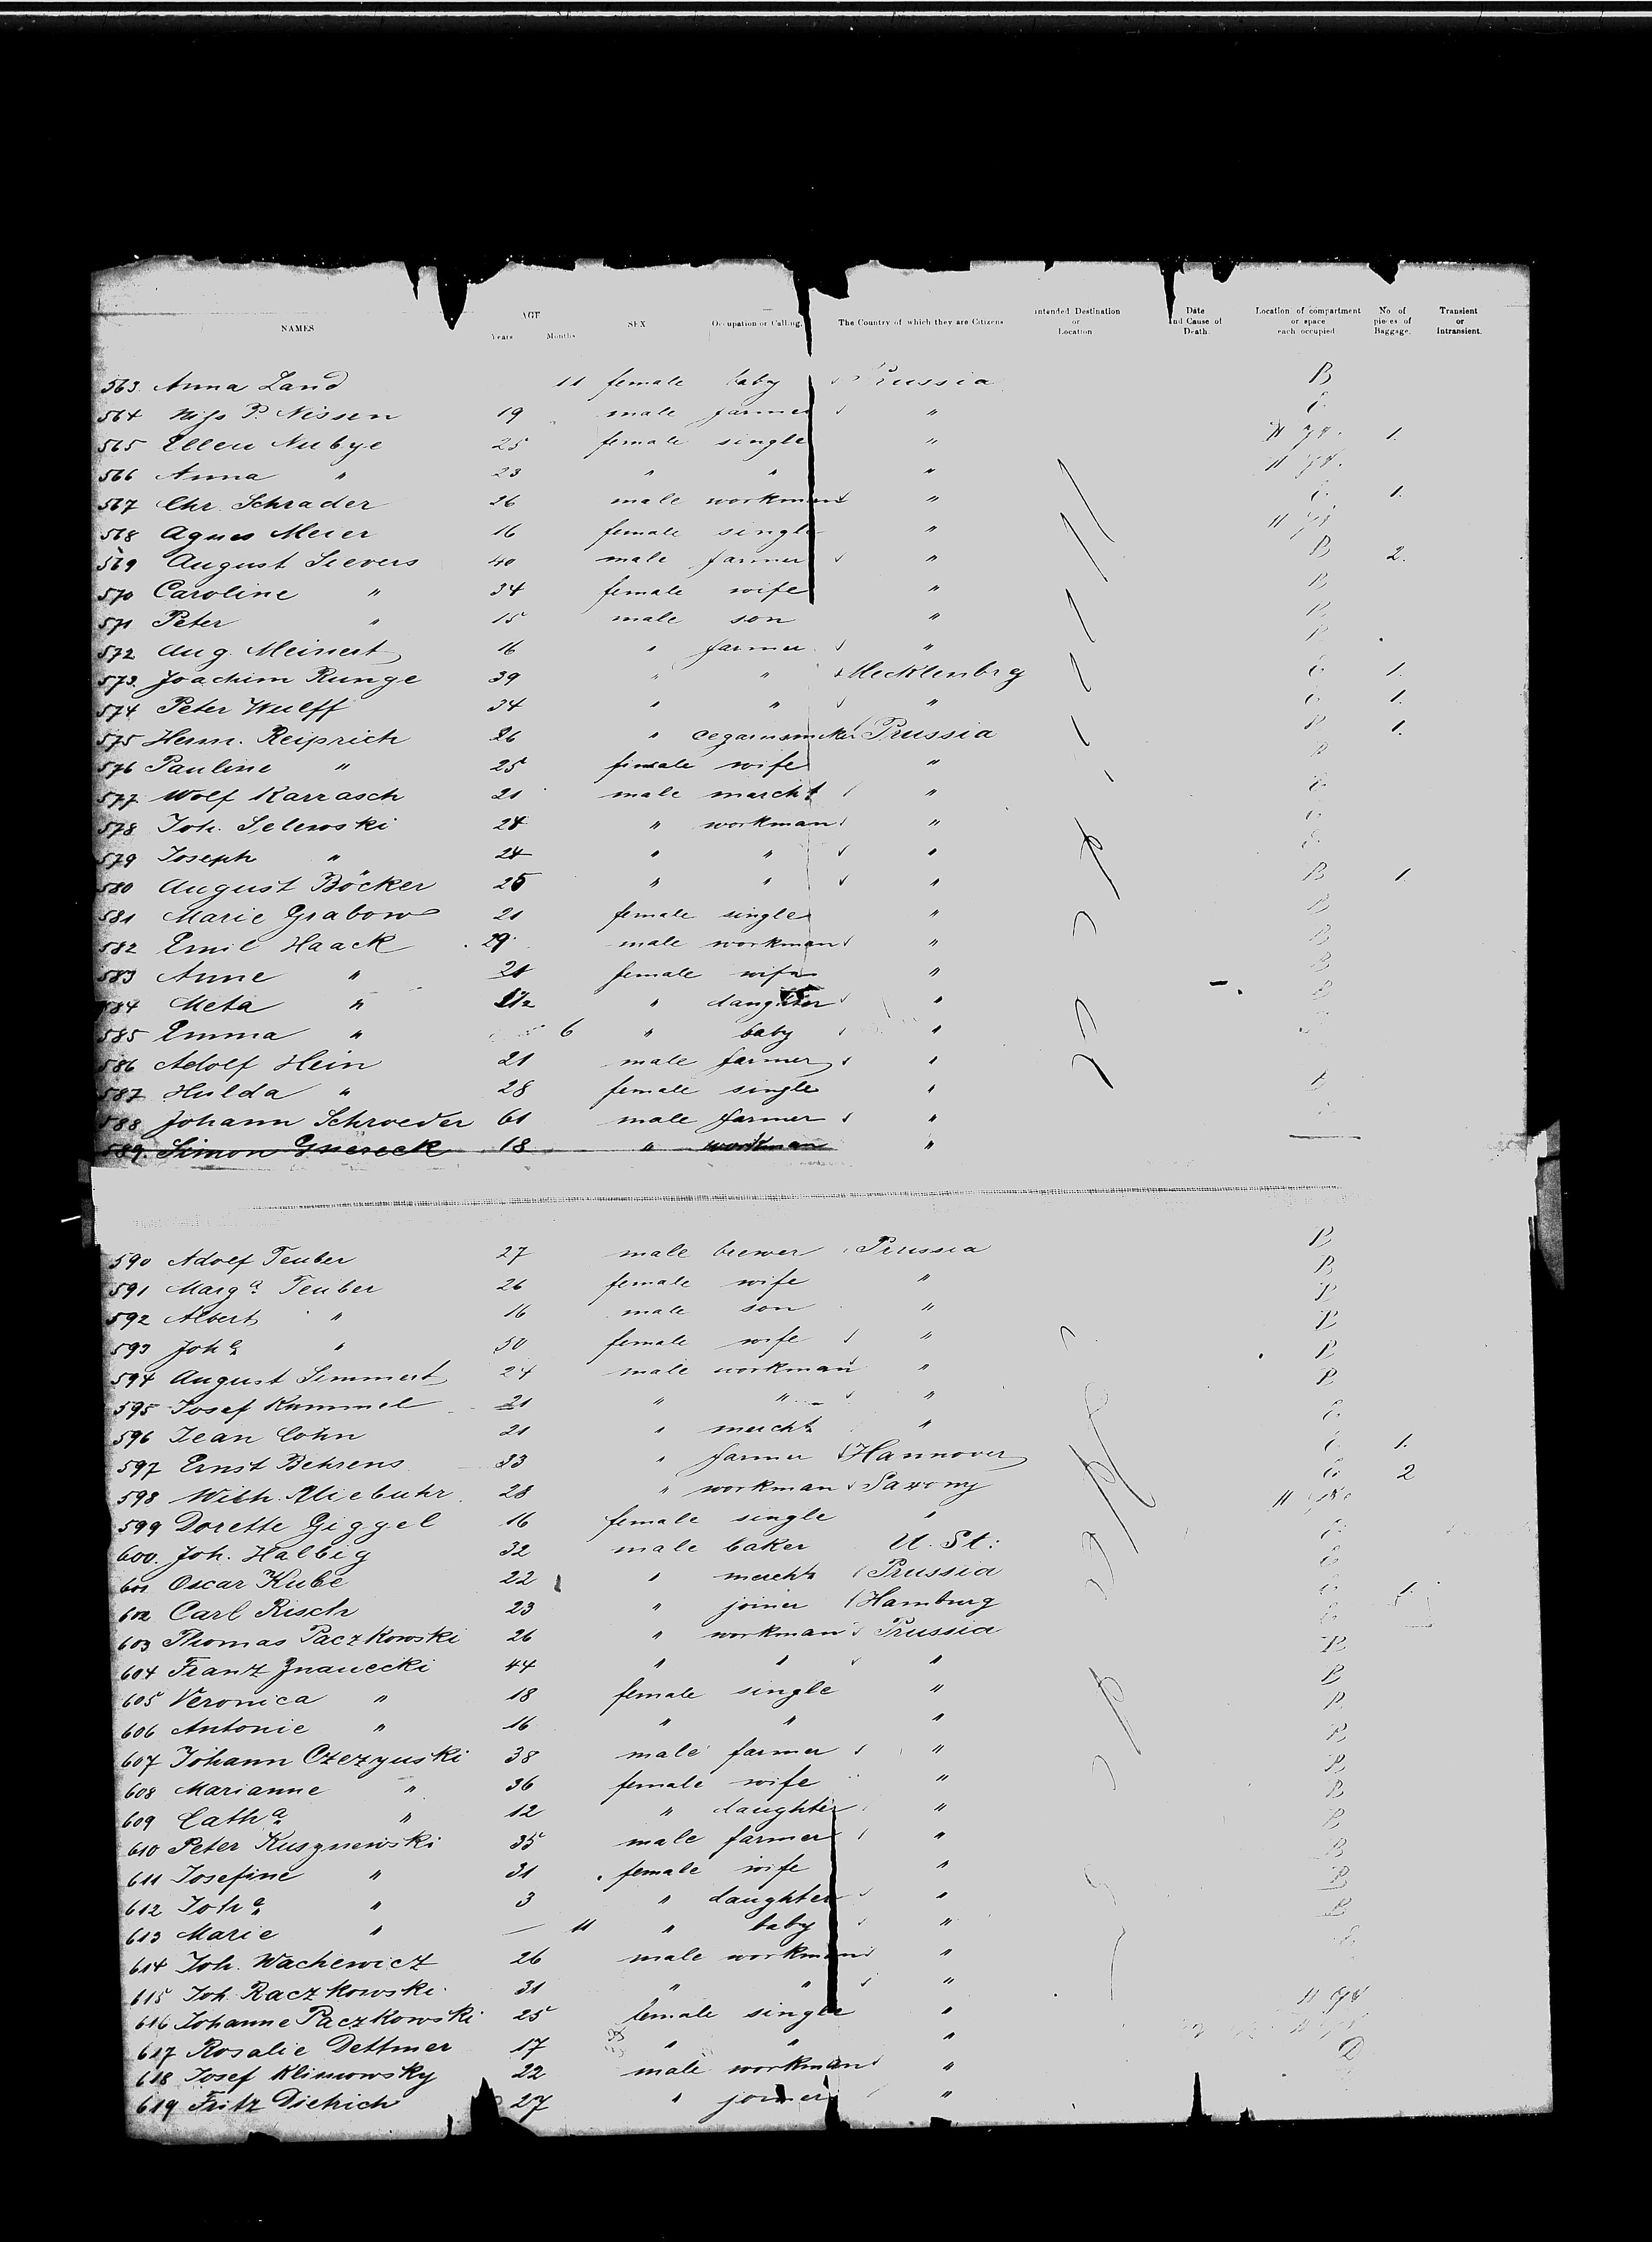 NAMES AGE Years Months SEX Occupation or Calling. The Country of which they are Citizens Intended Destination or Location Date and Cause of Death Location of compartment or space each occupied No of pieces of Baggage. Transient or Intransient.
563. Anna Land 11 female baby Prussia B
564 P. Nissen 19 male farmer "
565 Ellen Nubye 25 female single " 1.
566 Anna " 23 " " "
567 Chr. Schrader 26 male workman " 1.
568 Agnes Meier 16 female single "
569 August Sievers 40 male farmer " B 2.
570 Caroline " 34 female wife " B
571 Peter " 15 male son " B
572 Aug. Meinert 16 " farmer " B
573. Joachim Runge 39 " " Mecklenbrg 1.
574 Peter Wulff 34 " " " 1.
575 Herm. Reiprich 26 " Prussia B 1.
576 Pauline " 25 female wife " B
577 Wolf Karrasch 21 male marcht "
578 Joh. Selewski 24 " workman "
579 Joseph " 24 " " "
580 August Böcker 25 " " " B 1
581 Marie Grabow 21 female single " B
582 Emil Haack 29 male workman " B
583 Anne " 21 female wife " B
584 Meta " " daughter " B
585 Emma " 6 " baby "
586 Adolf Hein 21 male farmer "
587 Hulda " 28 female single " B
588 Johann Schroeder 61 male farmer "
589. Simon 18 " workman "
590 Adolf Teuber 27 male brewer Prussia B
591 Marg a Teuber 26 female wife " B
592 Albert " 16 male son " B
593 Joh a " 50 female wife " B
594 August Simmert 24 male workman " B
595 Josef Kummel 21 " " " B
596 Jean Cohn 21 " mercht "
597 Ernst Behrens 33 " farmer Hannover 1.
598 Wilh. Niebuhr 28 " workman Saxony 2
599 Dorette Giggel 16 female single "
600. Joh. Halbig 32 male baker U. St:
601 Oscar Kube 22 " mercht Prussia
602 Carl Risch 23 " joiner Hamburg 1.
603 Thomas Paczkowski 26 " workman Prussia
604 Franz Znaniecki 44 " " " B
605 Veronica " 18 female single " B
606 Antonie " 16 " " " B
607 Johann Czezyuski 38 male farmer " B
608 Marianne " 36 female wife " B
609 Cath a " 12 " daughter " B
610 Peter Kusznewski 35 male farmer " B
611 Josefine " 31 female wife " B
612 Joh a " 3 " daughter " B
613 Marie " — 11 " baby " B
614 Joh. Wachewicz 26 male workman "
615 Joh. Raczkowski 31 " " "
616 Johanne Paczkowski 25 female single "
617 Rosalie Dettmer 17 " " "
618 Josef Klimowsky 22 male workman " D
619 Fritz Dietrich 27 " joiner "